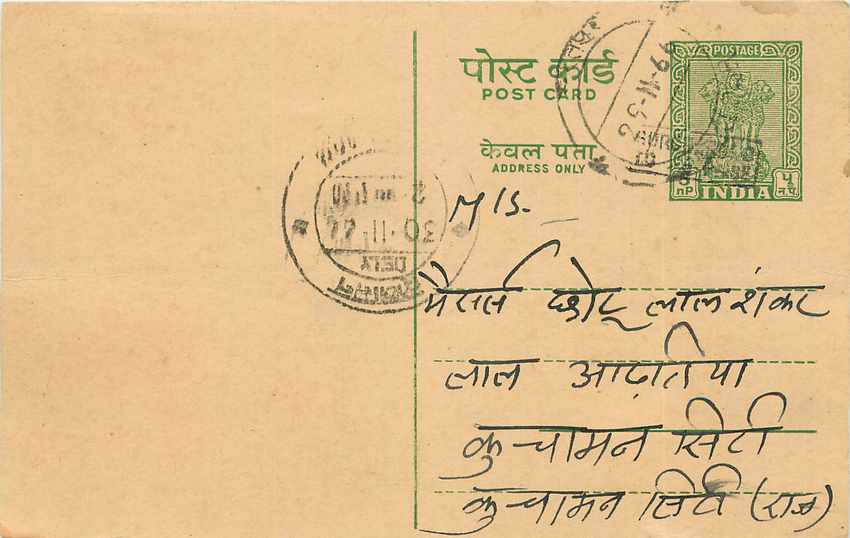 पोस्ट कार्ड
POST CARD
केवल पता
ADDRESS ONLY
POSTAGE
5 np
INDIA
५ न.प.
30·11·
DELY
M/S.
मैसर्स छोटू लाल शंकर
लाल आढ़तिया
कुचामन सिटी
कुचामन सिटी (राज)